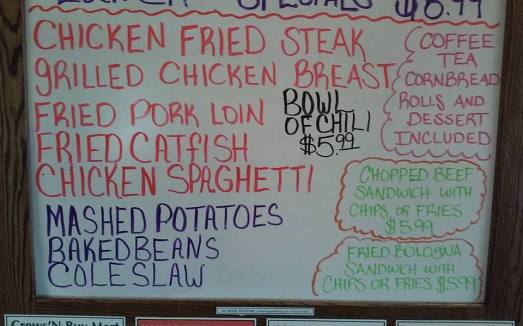 SPECIALS
CHICKEN FRIED STEAK
GRILLED CHICKEN BREAST
FRIED PORK LOIN
FRIED CATFISH
CHICKEN SPAGHETTI
BOWL
OF CHILI
$5.99
COFFEE
TEA
CORNBREAD
ROLLS AND
DESSERT
INCLUDED
MASHED POTATOES
BAKED BEANS
COLE SLAW
CHOPPED BEEF
SANDWICH WITH
CHIPS OR FRIES
$5.99
FRIED BOLOGNA
SANDWICH WITH
CHIPS OR FRIES $5.99
Crows'N Buy Mart